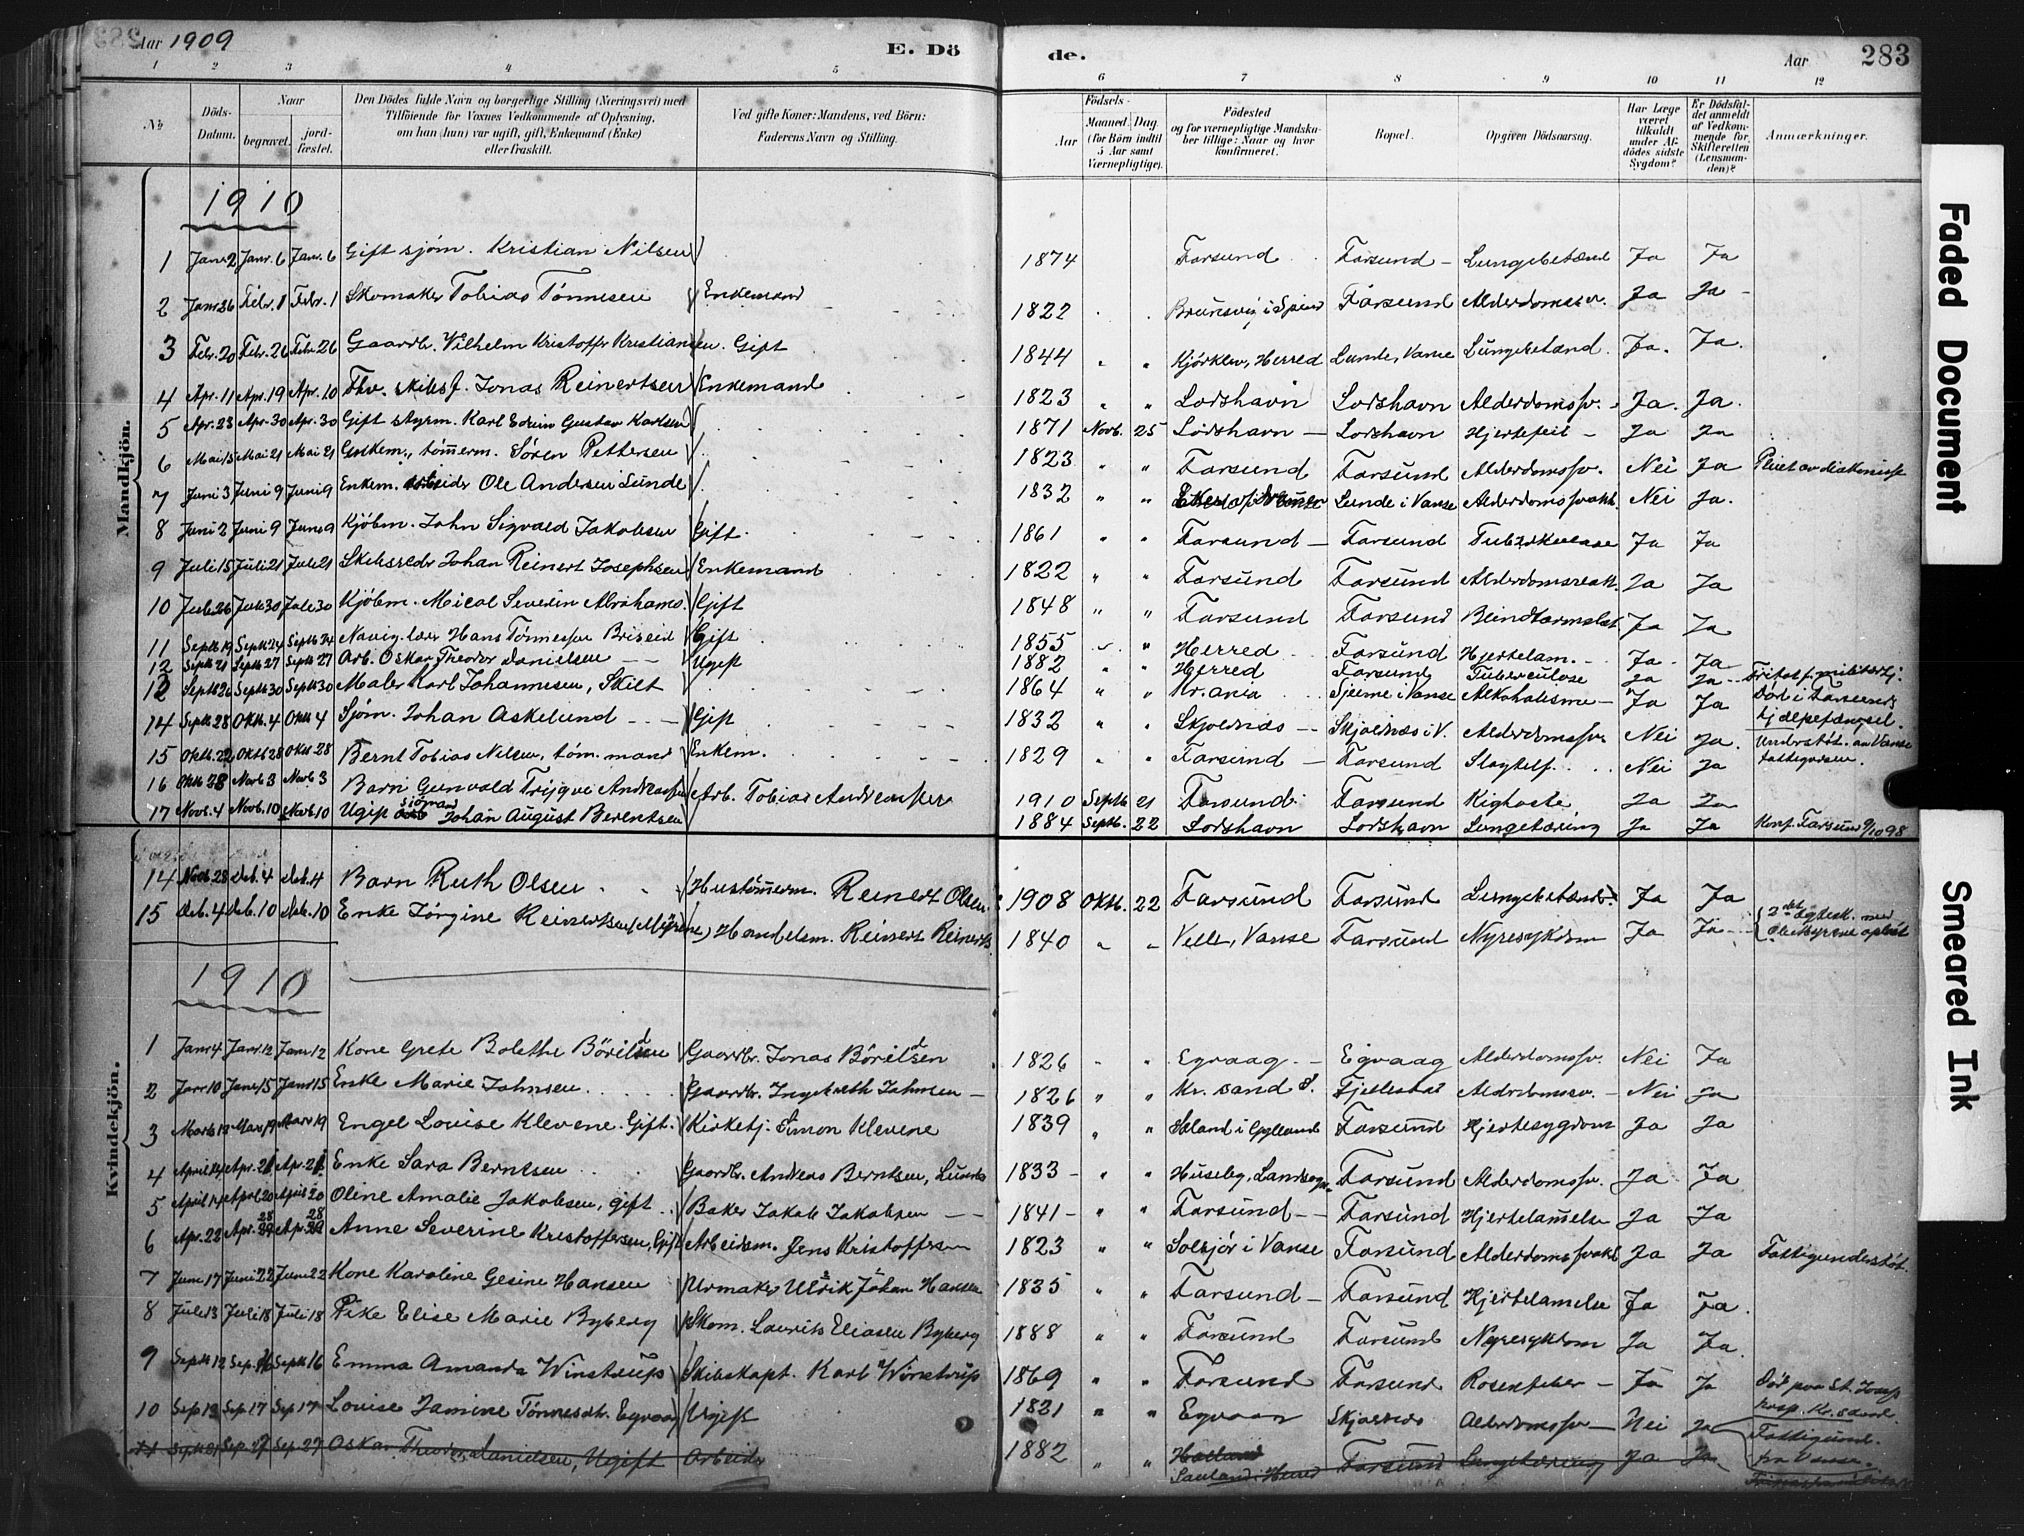 Aar 1909
E. Dö
de.
Aar
283
1 2 3 4 5 6 7 8 9 10 11 12
No
Döds-Datum.
Naar
begravet.
jord-fæstet.
Den Dödes fulde Navn og borgerlige Stilling (Næringsvei) med
Tilföiende for Voxnes Vedkommende af Oplysning,
om han (hun) var ugift, gift, Enkemand (Enke)
eller fraskilt.
Ved gifte Koner: Mandens, ved Börn:
Faderens Navn og Stilling.
Födsels-
Aar
Maaned. Dag
(for Börn indtil
5 Aar samt
Værnepligtige).
Födested
og for værnepligtige Mandska-
ber tillige: Naar og hvor
konfirmeret.
Bopæl.
Opgiven Dödsaarsag.
Har Læge
været
tilkaldt
under Af-
dödes sidste
Sygdom?
Er Dödsfal-
det anmeldt
af Vedkom-
mende for
Skifteretten
(Lensman-
den)?
Anmærkninger.
Mandkjön.
1910
1 Janr 2 Janr. 6 Janr. 6 Gift sjöm. Kristian Nilsen 1874 Farsund Farsund Lungebetænd Ja Ja
2 Janr 26 Febr. 1 Febr. 1 Skomaker Tobias Tönnesen Enkemand 1822 Brunsvig i Spind Farsund Alderdomssv. Ja Ja
3 Febr. 20 Febr. 26 Febr. 26 Gaardbr. Wilhelm Kristoffer Kristiansen. Gift 1844 Herred Lunde, Vanse Lungebetænd. Ja. Ja.
4 Apr. 11 Apr. 19 Apr. 10 Fhv. skibsf. Jonas Reinertsen Enkemand 1823 Lorshavn Lorshavn Alderdomssv. Ja. Ja.
5 Apr. 23 Apr. 30 Apr. 30 Gift styrm. Karl Edvin Gustav Karlsen 1871 Novb. 25 Lorshavn Lorshavn Hjertefeil Ja Ja
6 Mai 15 Mai 21 Mai 21 Enkem., tömmerm. Sören Pettersen 1823 Farsund Farsund Alderdomssv. Nei Ja Pleiet av diakonisse
7 Juni 3 Juni 9 Juni 9 Enkem. arbeider Ole Andersen Lunde 1832 Lunde i Vanse Alderdomssvakh. Nei Ja.
8 Juni 2 Juni 9 Juni 9 Kjöbm. John Sigvald Jakobsen Gift. 1861 Farsund Farsund Tuberkulose Ja Ja
9 Juli 15 Juli 21 Juli 21 Skibsreder Johan Reinert Josephsen Enkemand 1822 Farsund Farsund Alderdomssvakh. Ja Ja
10 Juli 26 Juli 30 Juli 30 Kjöbm. Mical Severin Abrahams. Gift 1848 Farsund Farsund Blindtarmsbet. Ja Ja
11 Septb 19 Septb 24 Septb 24 Navig. lærer Hans Tönnessen Briseid Gift 1855 Herred Farsund Hjertelam. Ja. Ja
12 Septb 21 Septb 27 Septb 27 Arb. Oskar Theodor Danielsen Ugift 1882 Herred Farsund Tuberculose Ja Ja Fritat f. militærtj.
12 Septb 26 Septb 30 Septb 30 Maler Karl Johannesen, Skilt 1864 Kr.ania Vanse Alkoholisme Ja Ja Död i Farsunds hjelpefængsel.
14 Septb 28 Oktb. 4 Oktb 4 Sjöm. Johan Askelund Gift 1832 Skjolnæs Skjolnæs i V. Alderdomssv. Nei Ja. Understöt. av Vanse
15 Oktb. 22 Oktb 28 Oktb 28 Bernt Tobias Nilsen, töm. mand Enkem. 1829 Farsund Farsund Slagtilf. Nei Ja fattigvæsen.
16 Oktb 28 Novb 3 Novb 3 Barn Gunvald Trygve Andreassen Arb. Tobias Andreassen 1910 Septb 21 Farsund Farsund Kighoste Ja Ja
17 Novb. 4 Novb. 10 Novb. 10 Ugift sjömand Johan August Berentsen 1884 Septb. 22 Lorshavn Lorshavn Lungetæring Ja Ja Konf. Farsund 9/10 98
14 Novb 28 Deb. 4 Deb. 4 Barn Ruth Olsen Hustömmerm. Reinert Olsen. 1908 Oktb. 22 Farsund Farsund Lungebetænd. Ja Ja
15 Deb. 4 Deb. 10 Deb. 10 Enke Jörgine Reinertsen (Myrene) Handelsm. Reinert Reinerts. 1840 Velle, Vanse Farsund Nyresykdom Ja Ja 2det egtesk. med Ole Myrene oplöst
Kvindekjön.
1910
1 Janr 4 Janr 12 Janr 12 Kone Grete Bolethe Börildsen Gaardbr. Jonas Börildsen 1826 Egvaag Egvaag Alderdomssv. Nei Ja
2 Janr 10 Janr 15 Janr 15 Enke Marie Johnsen Gaardbr. Ingebreth Johnsen 1826 Kr. sand S. Fjellestad Aldrdomssv. Nei Ja
3 Marts 13 Mars 19 Mars 19 Engel Lovise Klevene. Gift. Kirketj. Simon Klevene 1839 Farsund Hjertesygdom Ja Ja
4 April 14 Apr. 21 Apr. 21 Enke Sara Berntsen Gaardbr. Andreas Berntsen, Lunde 1833 Huseby, Farsund Alderdomssv. Ja Ja
5 April 14 April 20 April 20 Oline Amalie Jakobsen, gift Baker Jakob Jakobsen 1841 Farsund Farsund Hjertelamelse Ja Ja
6 Apr. 22 Apr. 28 Apr. 28 Anne Severine Kristoffersen, Gift Arbeidsm. Jens Kristoffersen 1823 Solsjör i Vanse Farsund Alderdomssvakh. Ja Ja Fattigunderstöt.
7 Juni 17 Juni 22 Juni 22 Kone Karoline Gesine Hansen Urmaker Ulrik Johan Hansen 1835 Farsund Farsund Hjertelamelse Ja Ja.
8 Juli 13 Juli 18 Juli 18 Pike Elise Marie Byberg Skom. Laurits Eliasen Byberg 1888 Farsund Farsund Nyresykdom Ja Ja.
9 Septb 12 Sep. 16 Septb 16 Emma Amanda Winstrup Skibskapt. Karl Winstrup 1869 Farsund Farsund Rosenfeber Ja Ja Död paa St. Josefs hosp. Kr.sand
10 Sep 12 Sep 17 Sep 17 Lovise Jamine Tönnesdtr. Egvaag Ugift 1821 Egvaag Skjolnes Alderdomssv Nei Ja Fattigund. fra Vanse.
11 Septb 21 Sep. 27 Sep. 27 Oskar Theodor Danielsen, Ugift Arbeider 1882 Farsund Lungetæring Ja Ja
Faded Document
Smeared Ink